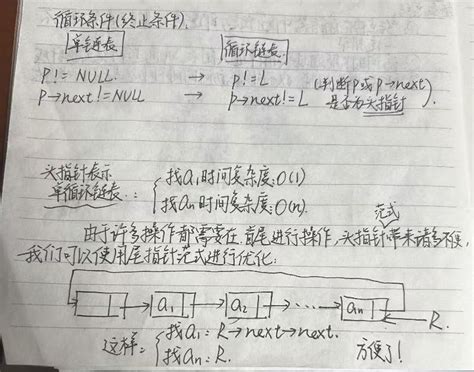 循环条件(终止条件).
单链表 循环链表
p!=NULL. → p!=L (判断p或p→next
p→next!=NULL → p→next!=L 是否为头指针).
头指针表示
单循环链表: { 找a1时间复杂度:O(1)
找an时间复杂度:O(n).
范式
由于许多操作都需要在首尾进行操作,头指针带来诸多不便,
我们可以使用尾指针范式进行优化:
→ a1 → a2 → ... → an ← R.
这样: { 找a1: R→next→next.
找an: R. 方便了!